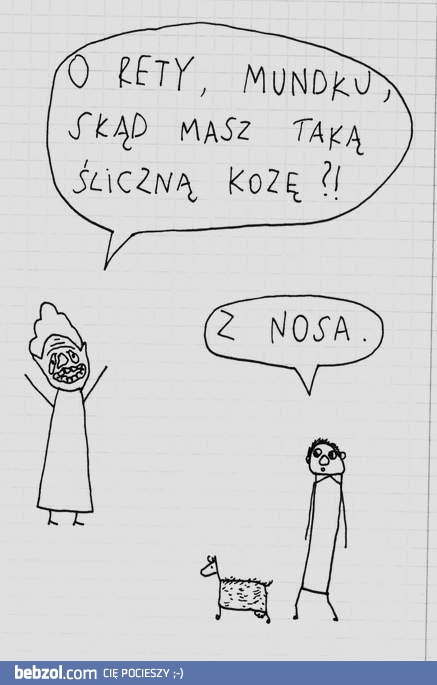 O RETY, MUNDKU,
SKĄD MASZ TAKĄ
ŚLICZNĄ KOZĘ?!
Z NOSA.
bebzol.com CIĘ POCIESZY ;-)